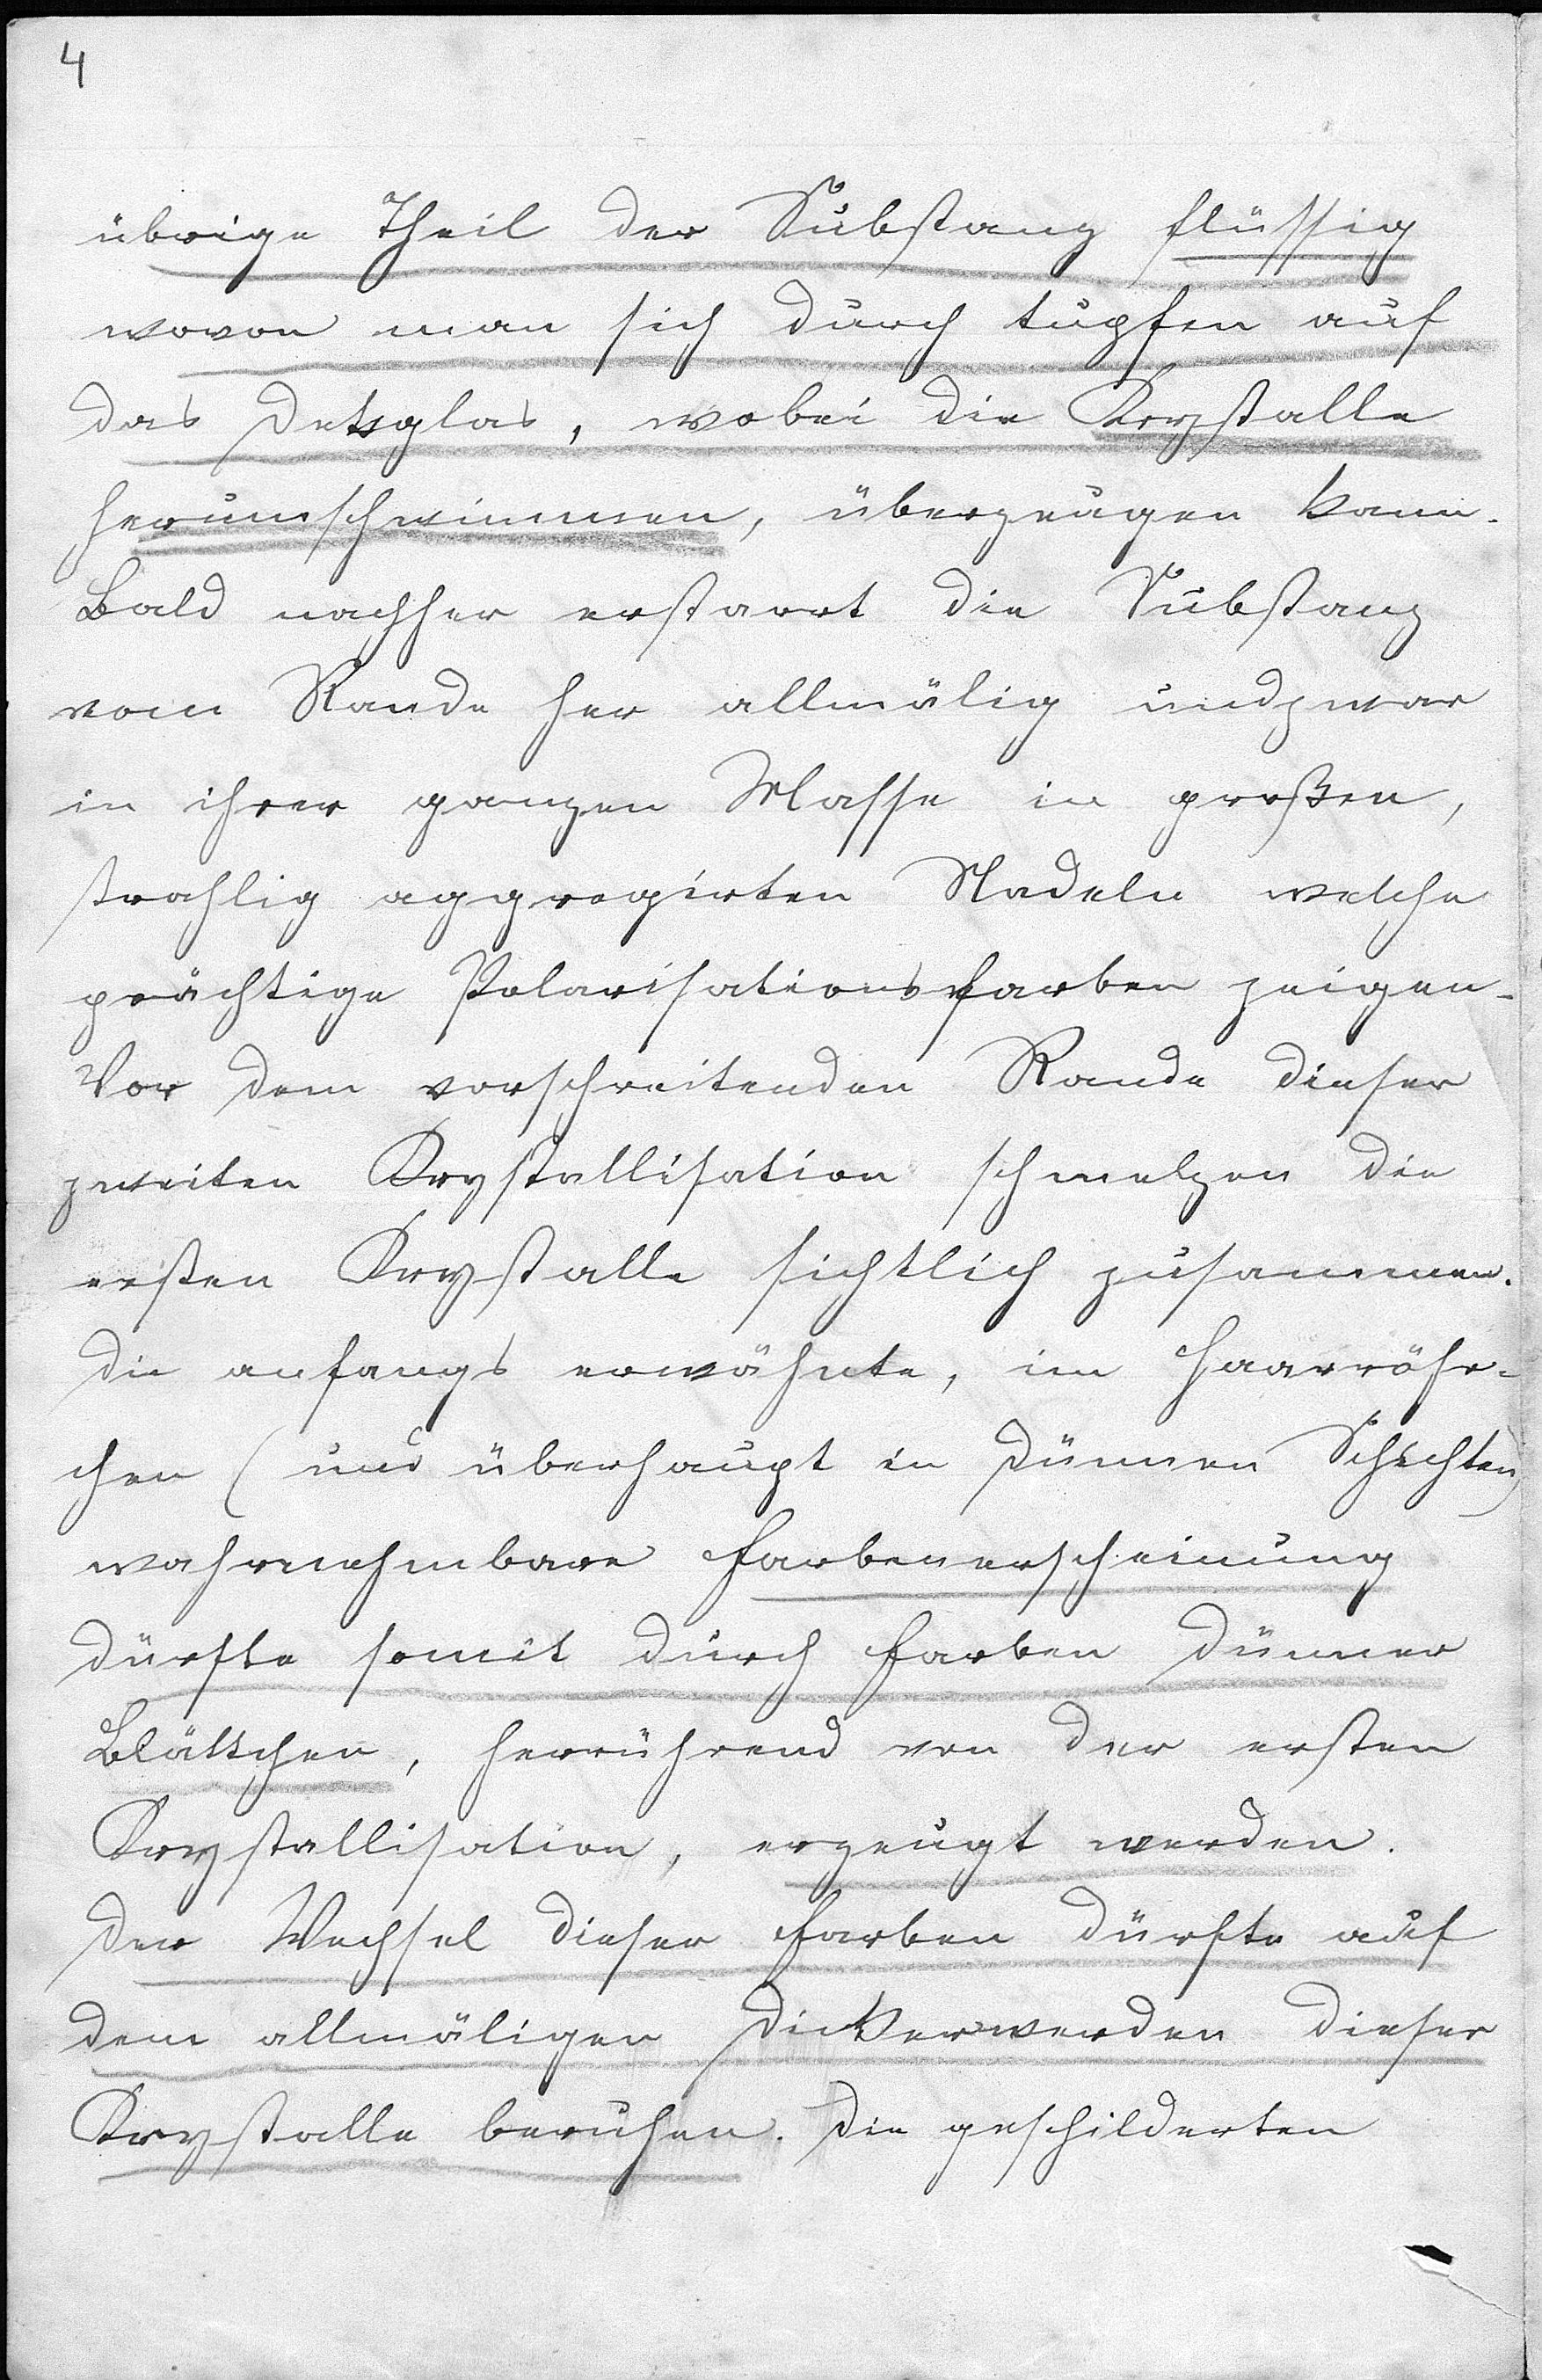 4
übrige Theil der Substanz flüssig
wovon man sich durch tupfen auf
das Dekglas, wobei die Krystalle
herumschwimmen, überzeugen kann.
Bald nachher erstarrt die Substanz
vom Rande her allmälig undzwar
in ihrer ganzen Masse in großen,
strahlig aggregirten Nadeln welche
prächtige Polarisationsfarben zeigen.
Vor dem vorschreitenden Rande dieser
zweiten Krystallisation schmelzen die
ersten Krystalle sichtlich zusammen.
Die anfangs erwähnte, im Haarröhr-
chen (und überhaupt in dünnen Schichten)
wahrnehmbare Farbenerscheinung
dürfte somit durch Farben dünner
Blättchen, herrührend von der ersten
Krystallisation, erzeugt werden.
Der Wechsel dieser Farben dürfte auf
dem allmäligen Dickerwerden dieser
Krystalle beruhen. Die geschilderten